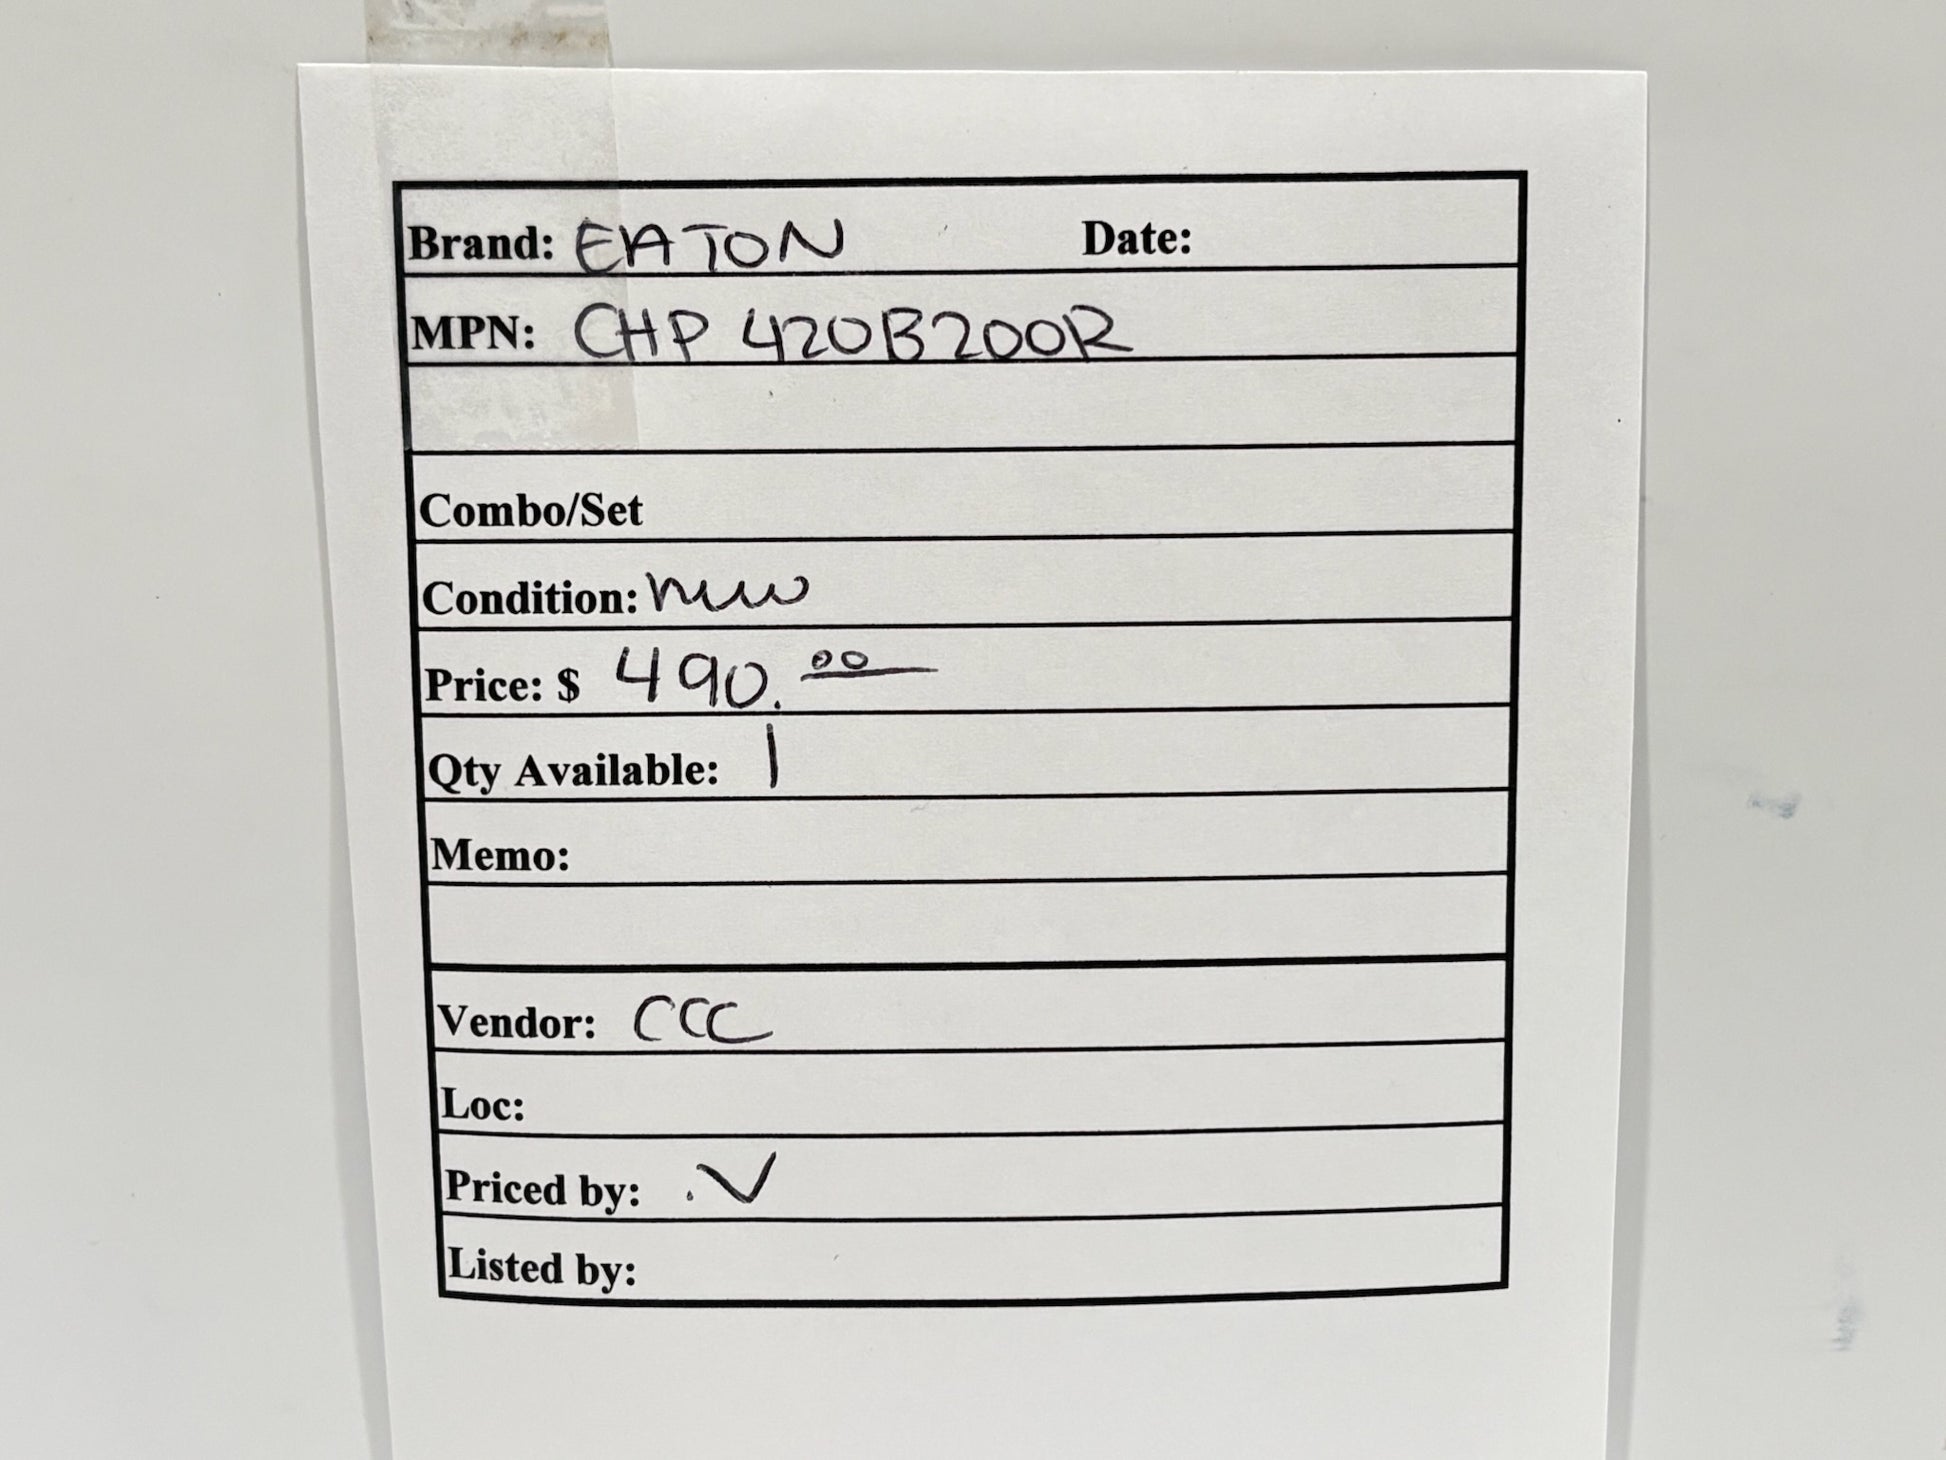 Brand: EATON Date:
MPN: CHP 420B200R
Combo/Set
Condition: new
Price: $ 490.00
Qty Available: 1
Memo:
Vendor: CCC
Loc:
Priced by: .V
Listed by: